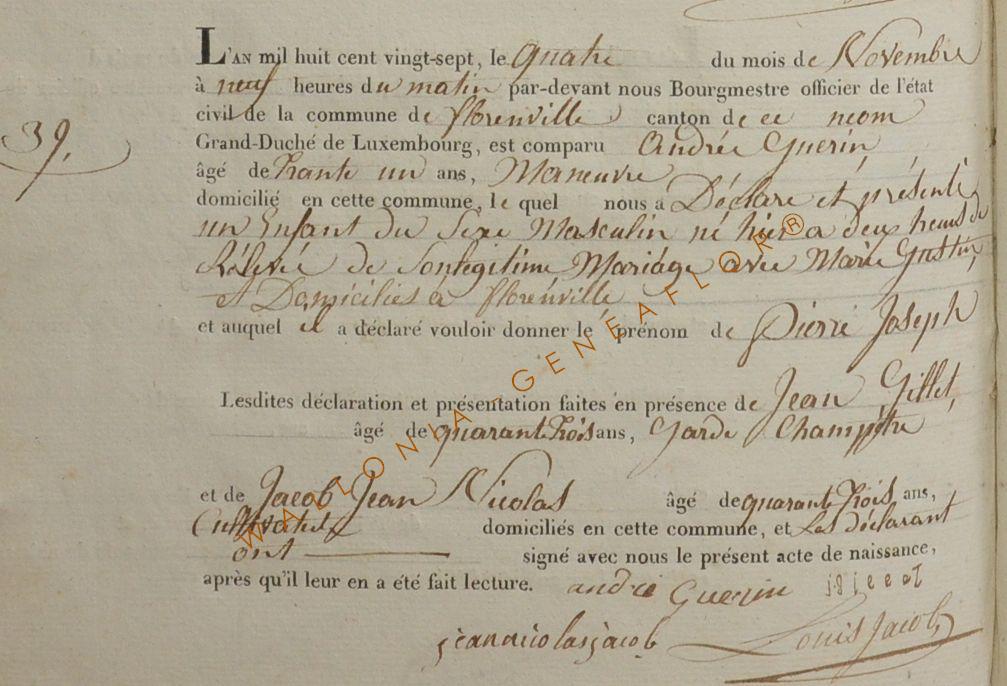 L'AN mil huit cent vingt-sept, le quatre du mois de Novembre
à neuf heures du matin par-devant nous Bourgmestre officier de l'état
civil de la commune de florenville canton de ce nom
Grand-Duché de Luxembourg, est comparu André Guerin
39.
âgé de trante un ans, Maneuvre
domicilié en cette commune, le quel nous a Déclaré et présenté
un Enfant du Sexe Masculin né hier a deux heures de
Rélevée de Sonlegitime Mariage avec Marie Gustin,
et Domiciliés a florenville
et auquel il a déclaré vouloir donner le prénom de Pierre Joseph
Lesdites déclaration et présentation faites en présence de Jean Gillet,
âgé de quarante trois ans, Garde Champêtre
et de Jacob Jean Nicolas âgé de quarante trois ans,
Cultivateur domiciliés en cette commune, et Les déclarant
ont signé avec nous le présent acte de naissance,
après qu'il leur en a été fait lecture. andré Guerin
jeannicolasjacob Louis Jacob,
WALLONIA-GENEAFLOR®